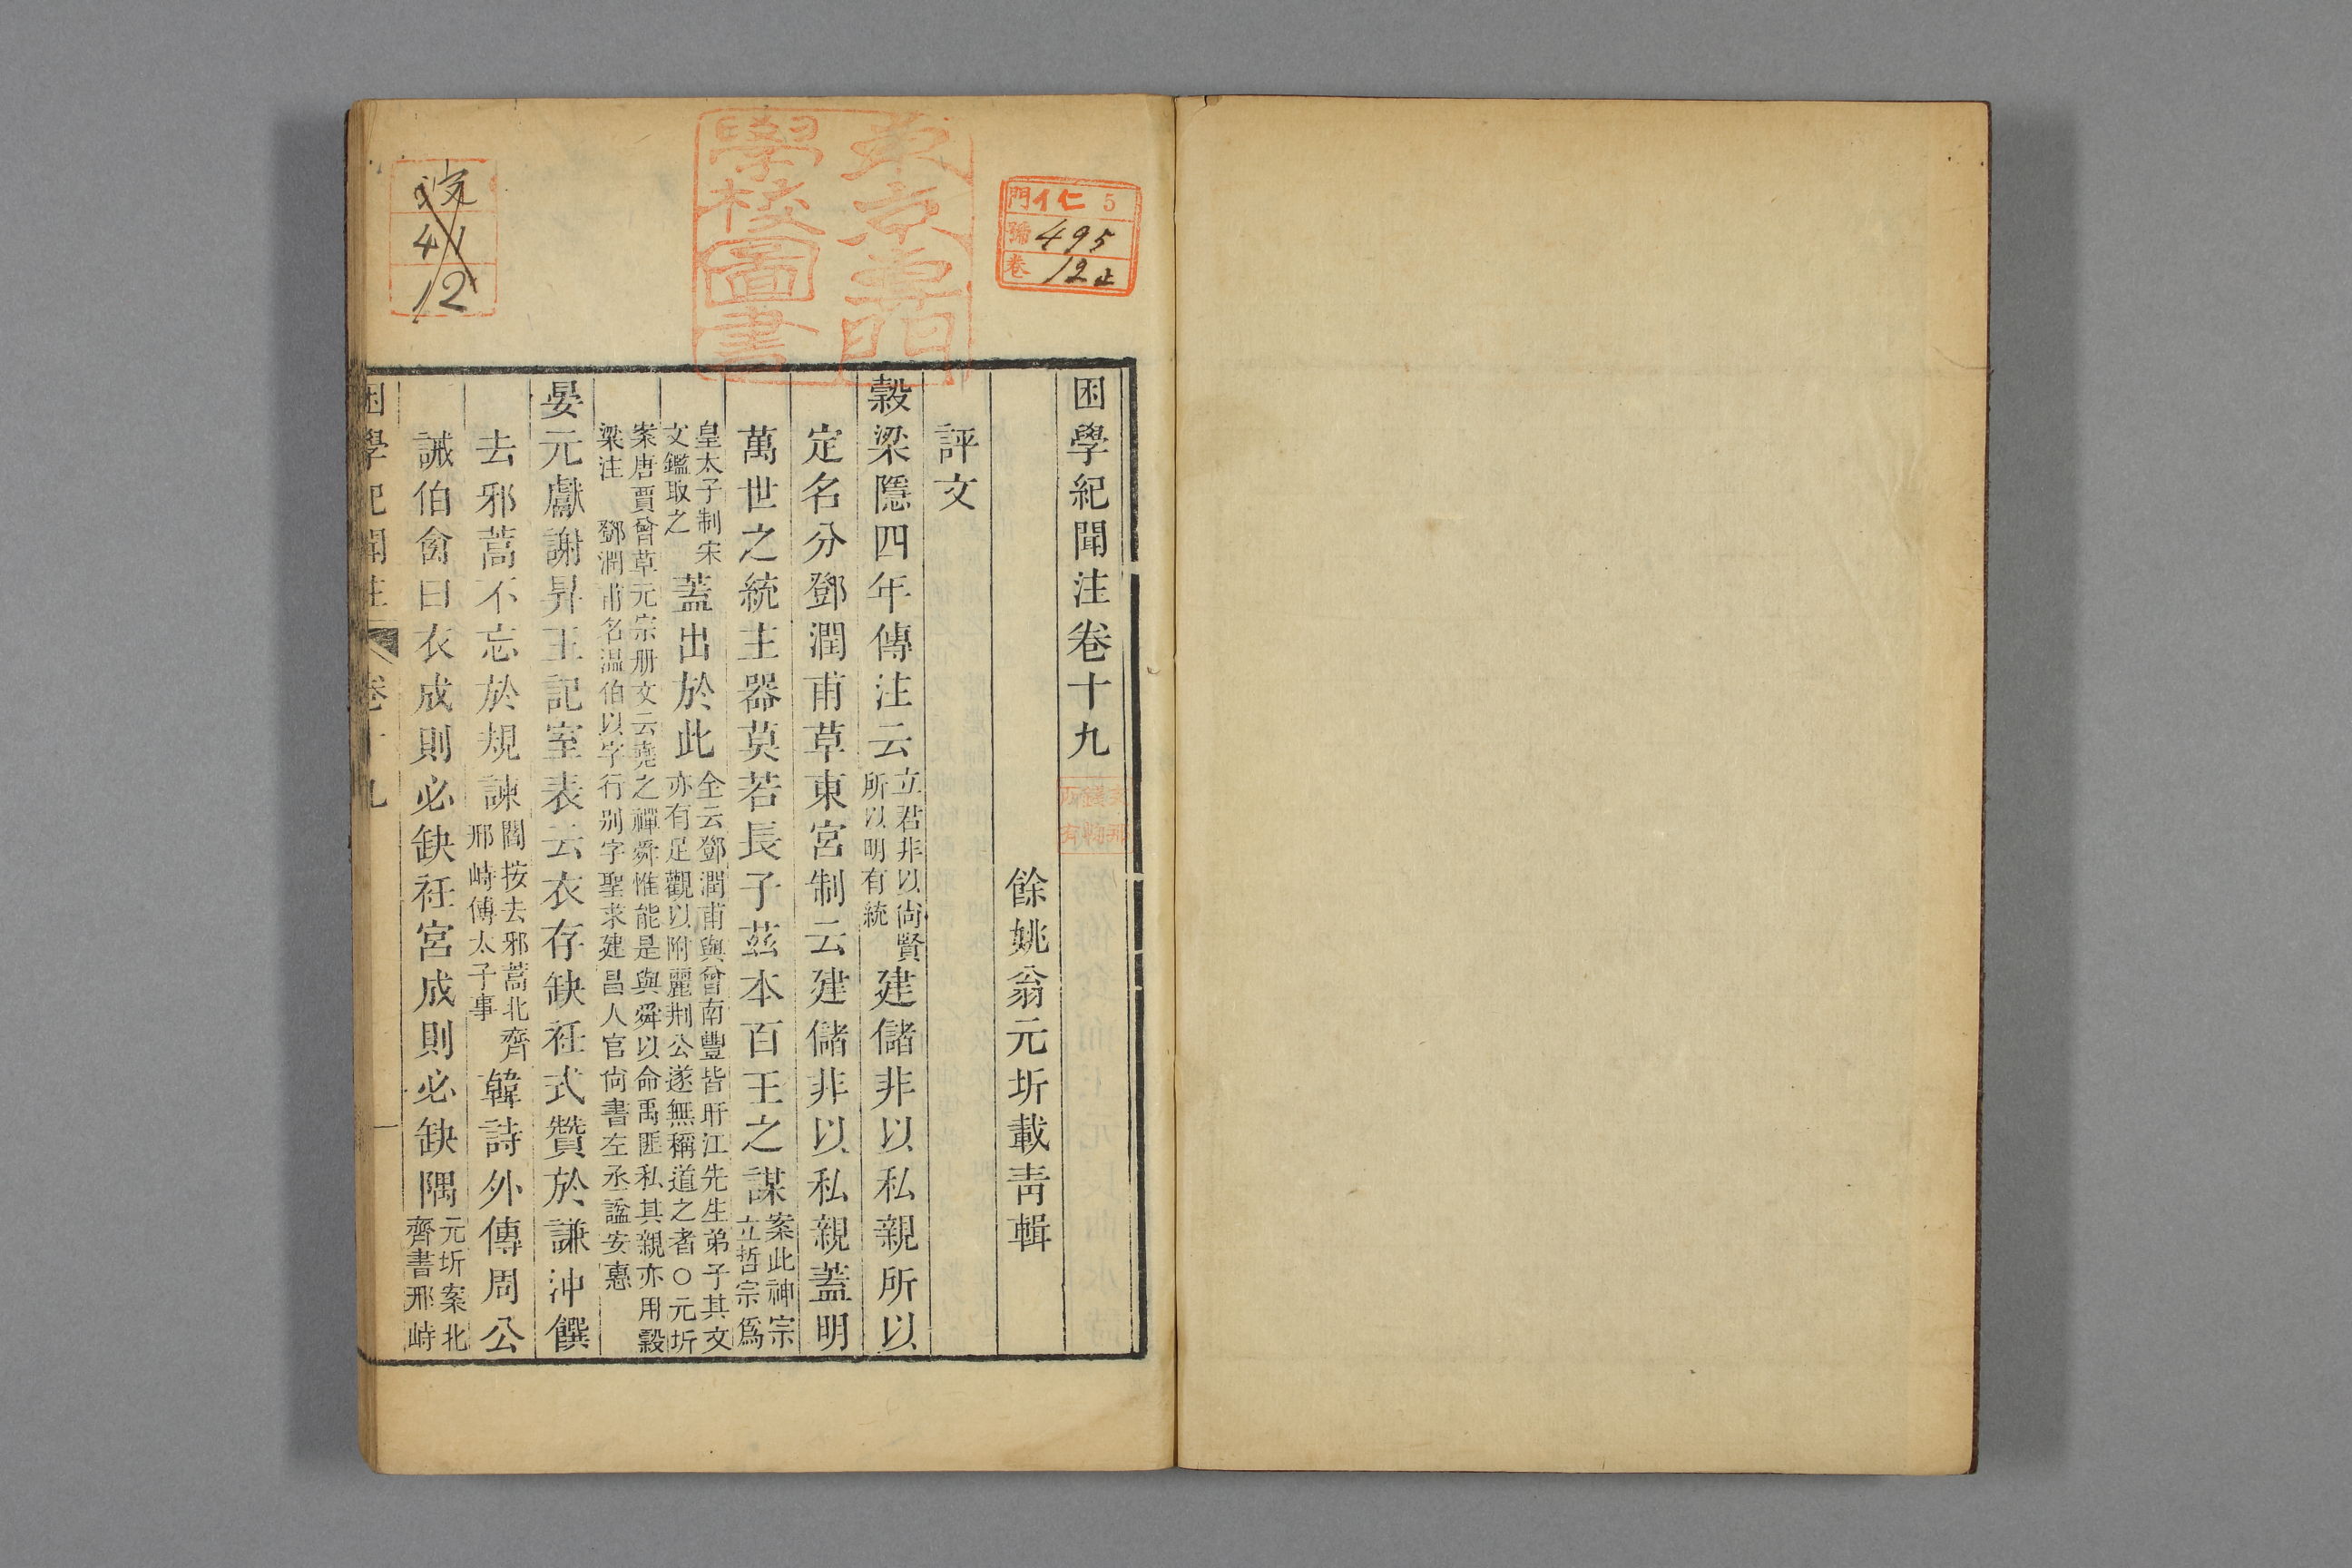 困學紀聞注卷十九
餘姚翁元圻載青輯
評文
穀梁隱四年傳注云立君非以尙賢所以明有統建儲非以私親所以
定名分鄧潤甫草東宮制云建儲非以私親蓋明
萬世之統主器莫若長子茲本百王之謀案此神宗立哲宗爲
皇太子制宋文鑑取之蓋出於此全云鄧潤甫與曾南豐皆盱江先生弟子其文亦有足觀以附麗荆公遂無稱道之者○元圻
案唐賈曾草元宗册文云堯之禪舜惟能是與舜以命禹匪私其親亦用穀梁注 鄧潤甫名温伯以字行别字聖求建昌人官尙書左丞諡安惠
晏元獻謝昇王記室表云衣存缺衽式贊於謙沖饌
去邪蒿不忘於規諫閻按去邪蒿北齊邢峙傅太子事韓詩外傳周公
誡伯禽曰衣成則必缺衽宮成則必缺隅元圻案北齊書邢峙
困學紀聞注 卷十九 一
東京專門學校圖書
門 イ仁 5
號 495
卷 12止
文
41
12